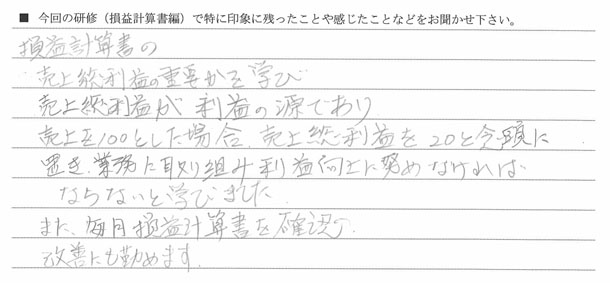 ■ 今回の研修（損益計算書編）で特に印象に残ったことや感じたことなどをお聞かせ下さい。
損益計算書の
売上総利益の重要かを学び
売上総利益が利益の源であり
売上を100とした場合、売上総利益を20と念頭に
置き、業務に取り組み利益向上に努めなければ
ならないと学びました。
また、毎月損益計算書を確認の
改善にも勤めます。